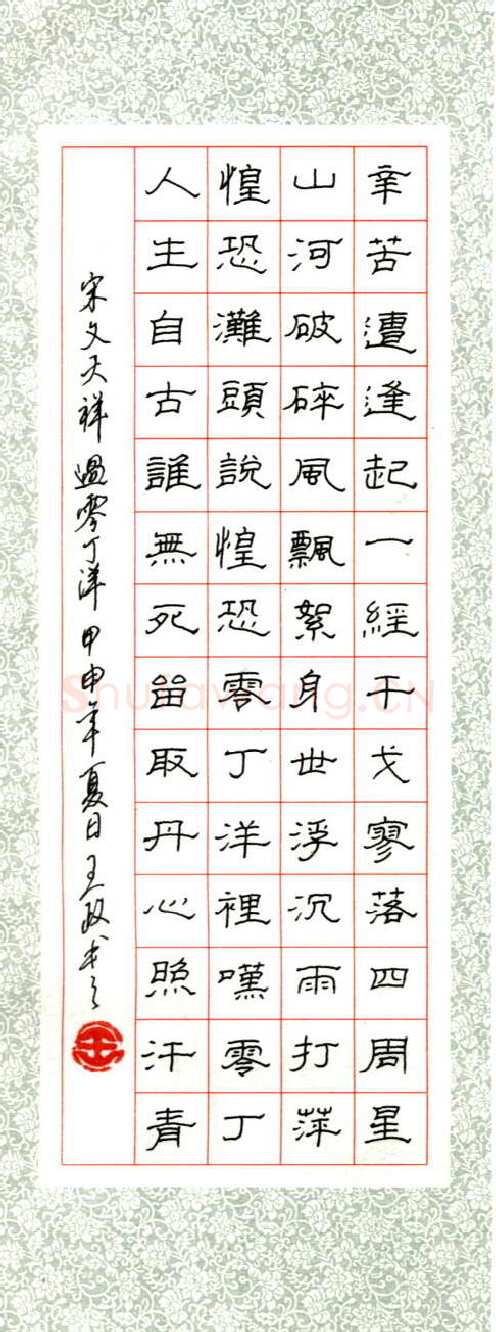 辛苦遭逢起一經干戈寥落四周星
山河破碎風飄絮身世浮沉雨打萍
惶恐灘頭說惶恐零丁洋裡嘆零丁
人生自古誰無死留取丹心照汗青
宋文天祥過零丁洋甲申年夏日王政書之
Shufawang.CN